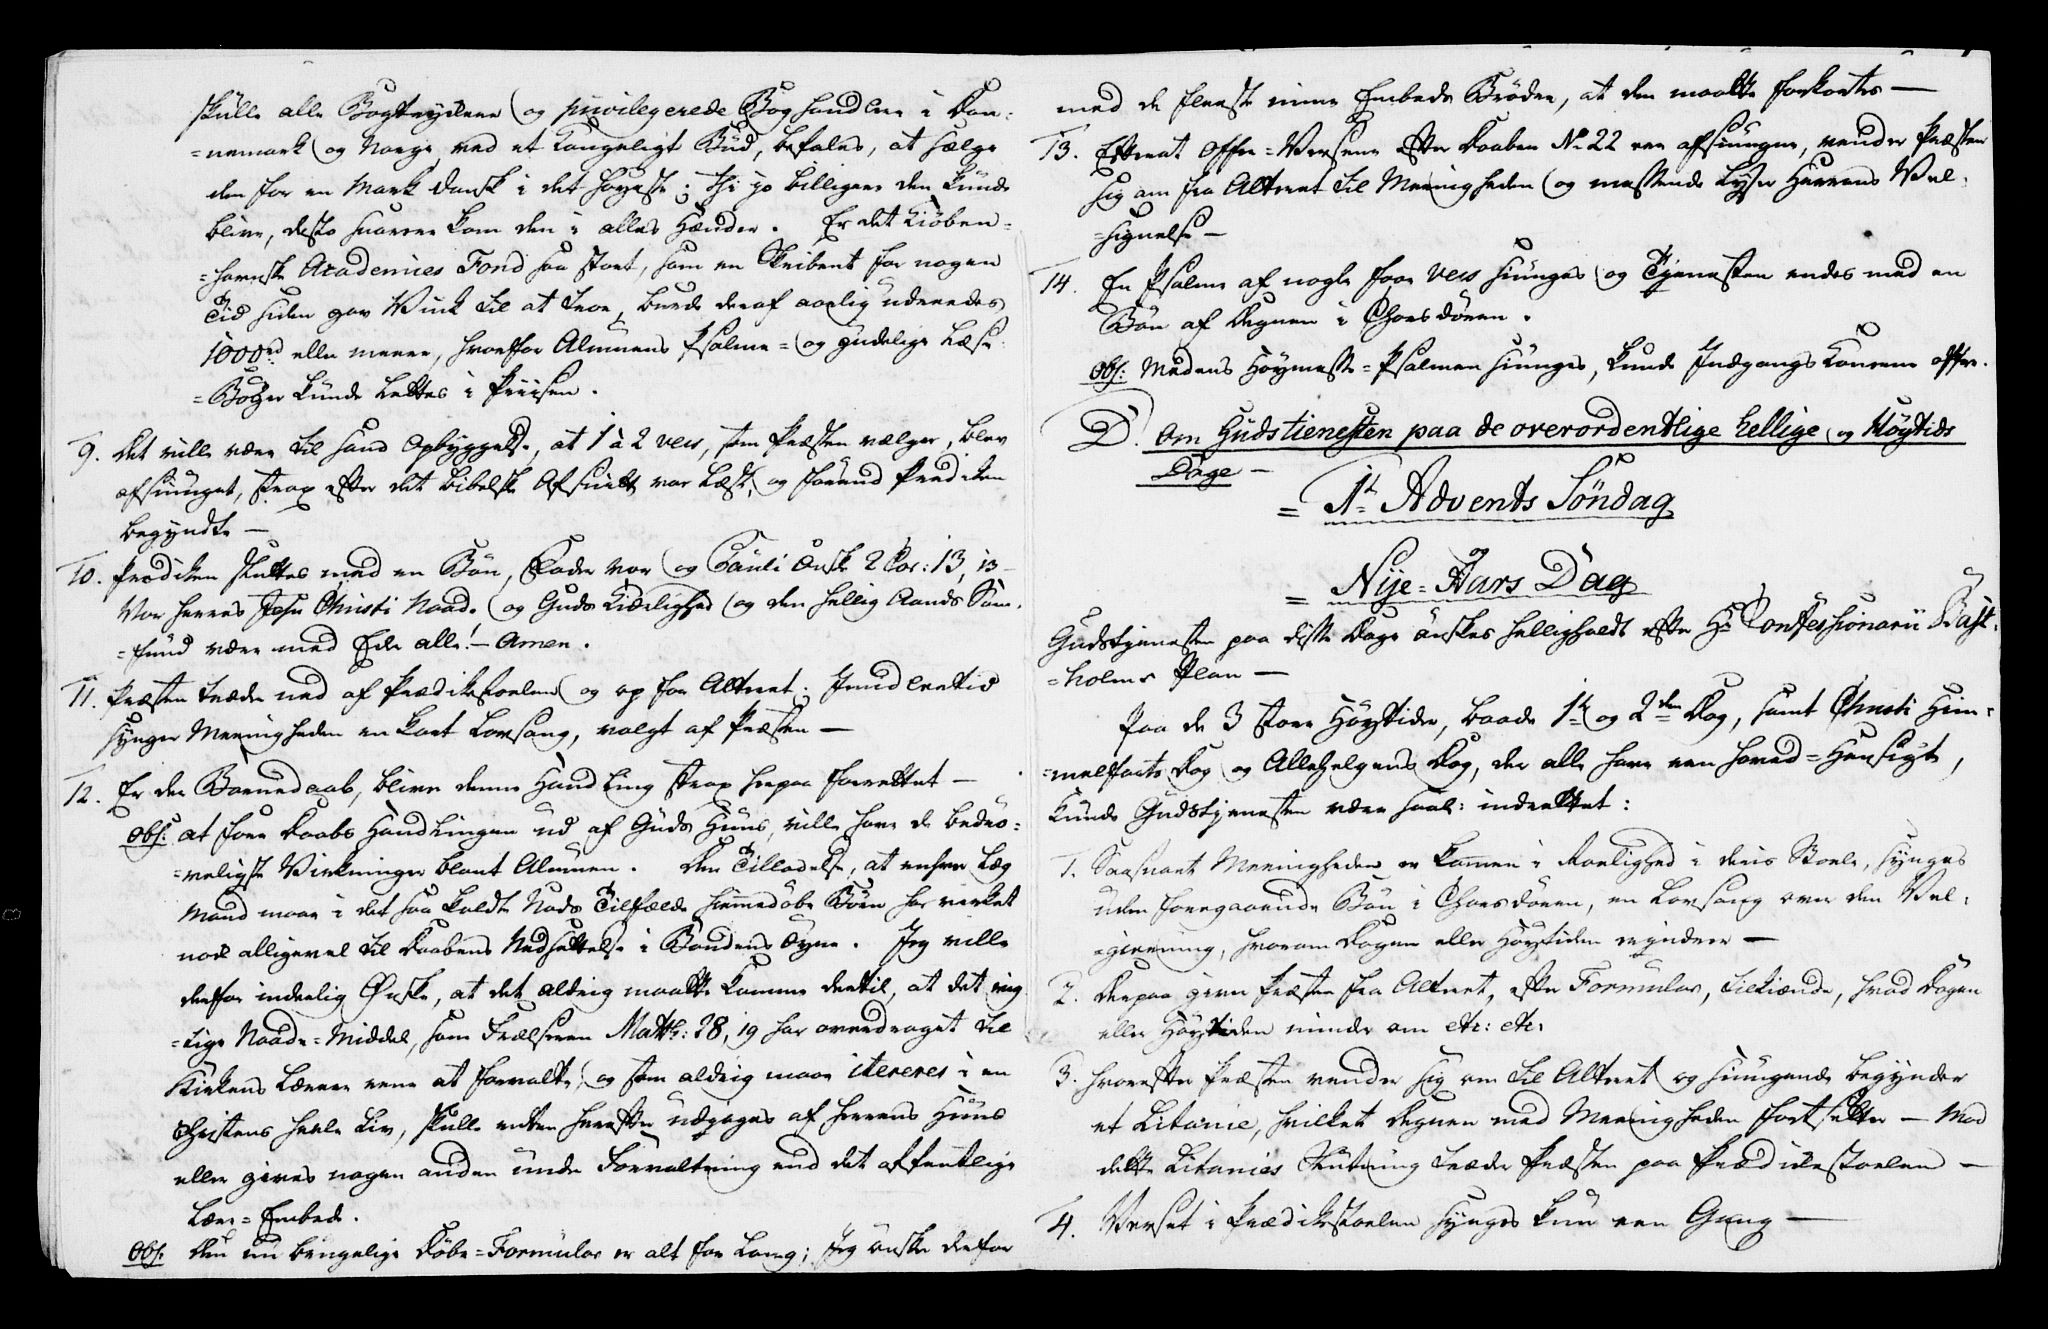 skulle alle Bogtrykkere og privilegerede Boghandlere i Dan-
=nemark og Norge ved et Kongeligt Bud, befales, at sælge
den for en Mark dansk i det høyeste; thi jo billigere den kunde
blive, desto snarere kom den i alles Hænder. Er det Kiöben-
=havnske Academies Fond saa stort, som en Skribent for nogen
Tid siden gav Vink til at troe, burde deraf aarlig udredes
1000rd eller meere, hvorfor Almuens Psalme= og gudelige Læse-
=Böger kunde lettes i Priisen.
9. Det ville være til sand Opbyggelse, at 1 à 2 vers, som Præsten vælger, blev
afsiunget, strax efter det bibelske Afsnit var læst, og forend Prædiken
begyndte —
10. Prædiken sluttes med en Bön, Fader vor og Pauli Ønske 2 Cor: 13, 13 —
Vor Herres Jesu Christi Naade og Guds Kiærlighed og den hellig Aands Sam-
=fund være med Eder alle! — Amen.
11. Præsten træder ned af Prædikestoelen og op for Alteret; Imidlertid
synger Meenigheden en kort Lovsang, valgt af Præsten —
12. Er der Barnedaab, bliver denne Handling strax herpaa forrettet —
Obs: at före Daabs Handlingen ud af Guds Huus, ville have de bedrö-
=veligste Virkninger blant Almuen. Den Tilladelse, at enhver Læg
Mand maae i det saa kaldte Nöds Tilfælde hiemmedöbe Börn har virket
nok alligevel til Daabens Nedsættelse i Bondens Öyne. Jeg ville
derfor inderlig Önske, at det aldrig maatte komme dertil, at det vig-
=tige Naade=Middel, som Frelseren Matth: 28, 19 har overdraget til
Kirkens Lærere ene at forvalte, og som aldrig maae itereres i en
Christens heele Liv, skulle enten herefter udjages af Herrens Huus
eller gives nogen anden under Forvaltning end det offentlige
Lære=Embede.
Obs. Den nu brugelige Döbe=Formular er alt for lang; Jeg önsker derfor
med de fleeste mine Embeds Brödre, at den maatte forkortes —
13. Efterat Offer=Versene efter Daaben No 22 ere afsiungne, vender Præsten
sig om fra Alteret til Meenigheden og messende lyser Herrens Vel-
=signelse —
14. En Psalme af nogle faae vers siunges og Tjenesten endes med en
Bön af Degnen i Choersdören.
Obs: Medens Höymesse=Psalmen siunges, kunde Indgangs Konerne offre.
D. Om Gudstienesten paa de overordentlige hellige og Höytids
Dage —
= 1te Advents Söndag
og
= Nye=Aars Dag
Gudstjenesten paa disse Dage önskes helligholdt efter Hr Confessionarii Bast-
=holms Plan —
Paa de 3 store Höytider, baade 1te og 2den Dag, samt Christi Him-
=melfarts Dag og Allehelgens Dag, der alle have een hoved=Hensigt,
kunde Gudstjenesten være saal: indrettet:
1. Saasnart Meenigheden er kommen i Roelighed i deris Stoele, synges
uden foregaaende Bön i Choersdören, en Lovsang over den Vel-
=gierning, hvorom Dagen eller Höytiden erindrer —
2. Derpaa giver Præsten fra Alteret, efter Formular, tilkiende, hvad Dagen
eller Höytiden minder om etc: etc:
3. Hvorefter Præsten vender sig om til Alteret og siungende begynder
et Litanie, hvilket Degnen med Meenigheden fortsetter — Mod
dette Litanies Slutning træder Præsten paa Prædikestoelen —
4. Verset i Prædikestoelen synges kun een Gang —